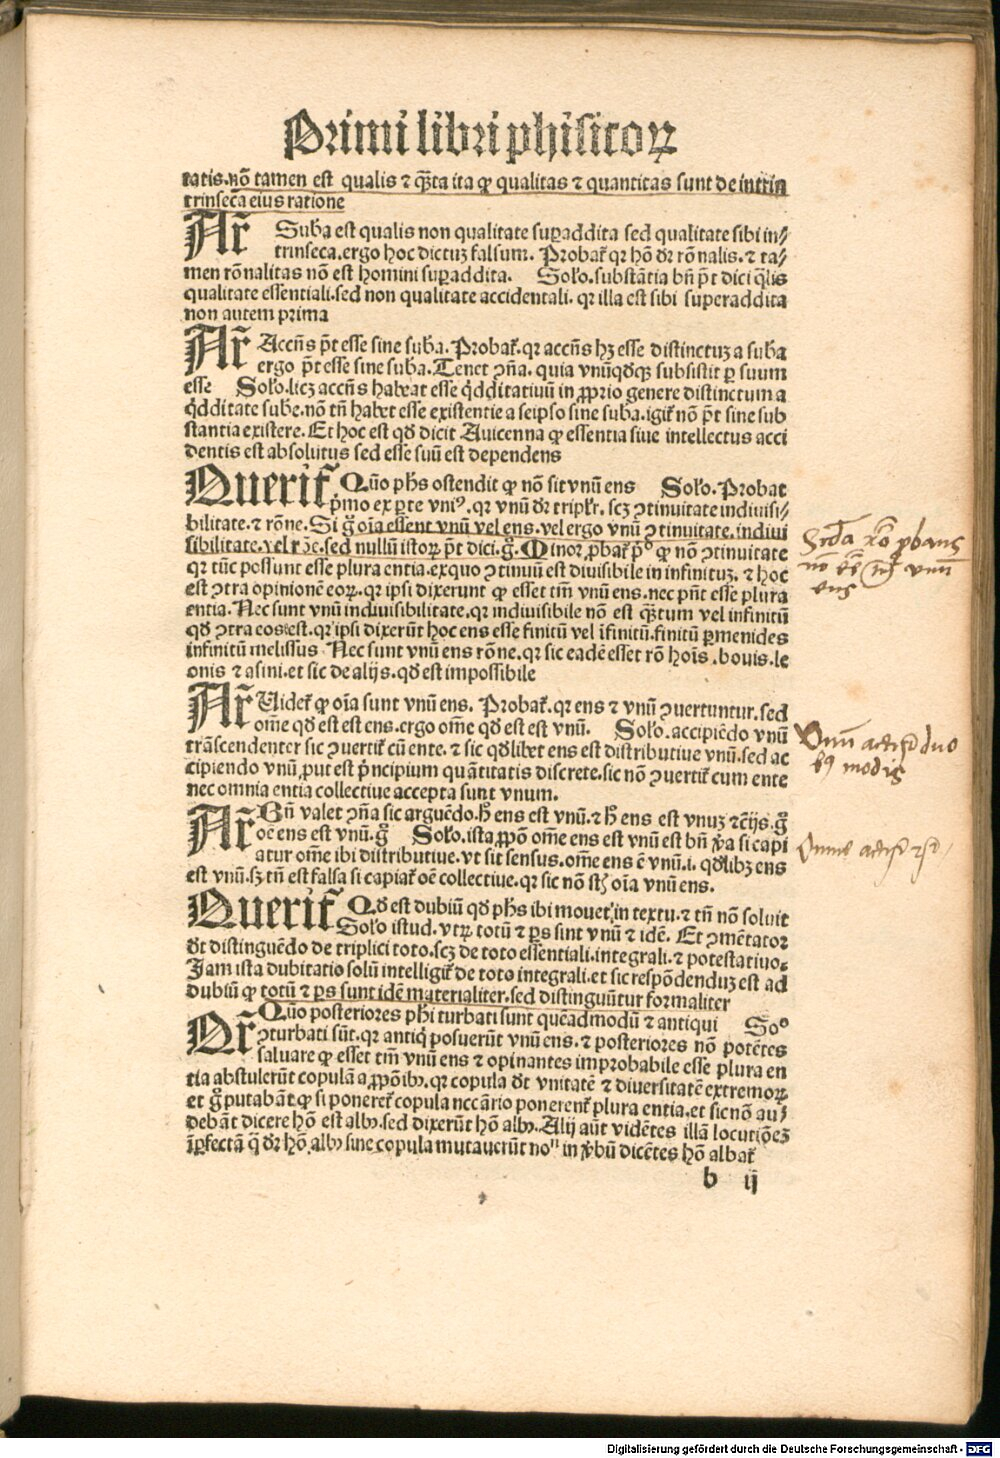 Primi libri phisicoꝝ
tatis.nō tamen est qualis ⁊ q̄ta ita ꝙ qualitas ⁊ quantitas sunt de intrin
trinseca eius ratione
Ar̄ Suba est qualis non qualitate suꝑaddita sed qualitate sibi in⸗
trinseca.ergo hoc dictuꝫ falsum. Probat̄ qꝛ hō dꝛ rōnalis.⁊ ta⸗
men rōnalitas nō est homini suꝑaddita. Solo.substātia bn̄ pt̄ dici q̄lis
qualitate essentiali.sed non qualitate accidentali. qꝛ illa est sibi superaddita
non autem prima
Ar̄ Accn̄s pt̄ esse sine suba.Probat̄.qꝛ accn̄s hꝫ esse distinctuꝫ a suba
ergo pt̄ esse sine suba.Tenet ꝯn̄a. quia vnūqḋqꝫ subsistit ꝑ suum
esse Solo.licꝫ accn̄s habeat esse qdditatiuū in ꝓprio genere distinctum a
qdditate sube.nō tn̄ habet esse existentie a seipso sine suba.igit̄ nō pt̄ sine sub
stantia existere. Et hoc est qḋ dicit Auicenna ꝙ essentia siue intellectus acci
dentis est absolutus sed esse suū est dependens
Querit̄ Quo ph̄s ostendit ꝙ non sit vnū ens Solo.Probat
pmo ex ꝑte vniꝰ.qꝛ vnū dꝛ triplr̄. scꝫ ꝯtinuitate indiuisi⸗
bilitate.⁊ rōne. Si g̊ oīa essent vnū vel ens.vel ergo vnū ꝯtinuitate.indiui
sibilitate.vel rōe.sed nullū istoꝝ pt̄ dici.g̊. Minor ꝓbat̄ p̊ ꝙ nō ꝯtinuitate
qꝛ tūc possunt esse plura entia.exquo ꝯtinuū est diuisibile in infinituꝫ. ⁊ hoc
est ꝯtra opinionē eoꝝ. qꝛ ipsi dixerunt ꝙ esset tm̄ vnū ens.nec pn̄t esse plura
entia. Nec sunt vnū indiuisibilitate.qꝛ indiuisibile nō est q̄tum vel infinitū
qḋ ꝯtra eos est.qꝛ ipsi dixerūt hoc ens esse finitū vel īfinitū.finitū ꝑmenides
infinitū melissus Nec sunt vnū ens rōne.qꝛ sic eadē esset rō hoīs .bouis.le
onis ⁊ asini.et sic de alijs.qḋ est impossibile
Ar̄ Videt̄ ꝙ oīa sunt vnū ens. Probat̄.qꝛ ens ⁊ vnū ꝯuertuntur.sed
om̄e qḋ est est ens.ergo om̄e qḋ est est vnū. Solo.accipiēdo vnū
trāscendenter sic ꝯuertit̄ cū ente. ⁊ sic qḋlibet ens est distributiue vnū.sed ac
cipiendo vnū ꝓut est pncipium quātitatis discrete.sic nō ꝯuertit̄ cum ente
nec omnia entia collectiue accepta sunt vnum.
Ar̄ Bn̄ valet ꝯn̄a sic arguēdo.h̄ ens est vnū.⁊ h̄ ens est vnuꝫ ⁊c̄ijs.g̊
oē ens est vnū.g̊ Solo.ista ꝓpō om̄e ens est vnū est bn̄ v̄a si capi
atur om̄e ibi distributiue.vt sit sensus.om̄e ens ē vnū.i. qḋlibꝫ ens
est vnū.sꝫ tn̄ est falsa si capiat̄ oē collectiue.qꝛ sic nō st̄ oīa vnū ens.
Querit̄ Qḋ est dubiū qḋ ph̄s ibi mouet in textu.⁊ tn̄ nō soluit
Solo istud. vtꝝ totū ⁊ ꝑs sint vnū ⁊ idē. Et ꝯmētator
dt̄ distinguēdo de triplici toto.scꝫ de toto essentiali.integrali.⁊ potestatiuo.
Jam ista dubitatio solū intelligit̄ de toto integrali.et sic respōdenduꝫ est ad
dubiū ꝙ totū ⁊ ꝑs sunt idē materialiter.sed distinguūtur formaliter
Qr̄ Quo posteriores phi turbati sunt quēadmodū ⁊ antiqui So⁰
ꝯturbati sūt.qꝛ antiq posuerūt vnū ens.⁊ posteriores nō potētes
saluare ꝙ esset tm̄ vnū ens ⁊ opinantes improbabile esse plura en
tia abstulerūt copulā a ꝓpōibꝰ.qꝛ copula dt̄ vnitatē ⁊ diuersitatē extremoꝝ
et g̊ putabāt ꝙ si poneret̄ copula nccārio ponerent̄ plura entia.et sic nō au⸗
debāt dicere hō est albꝰ.sed dixerūt hō albꝰ. Alij aūt vidētes illā locutiōeꝫ
īꝑfectā q̄ dꝛ hō albꝰ sine copula mutauerūt noⁿ in v̄bū dicētes hō albat̄
b ij
Scḋa rō ꝓbans
nō eē tm̄ vnum
ens
Vnū accipit̄ duo
bꝰ modis
Omne accipit̄
Digitalisierung gefördert durch die Deutsche Forschungsgemeinschaft - DFG